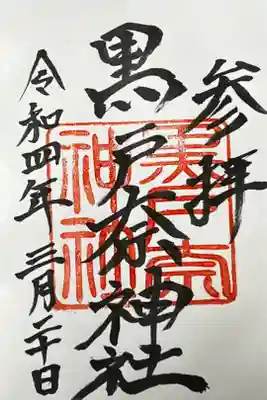 参拝
黒戸奈神社
令和四年 三月二十日